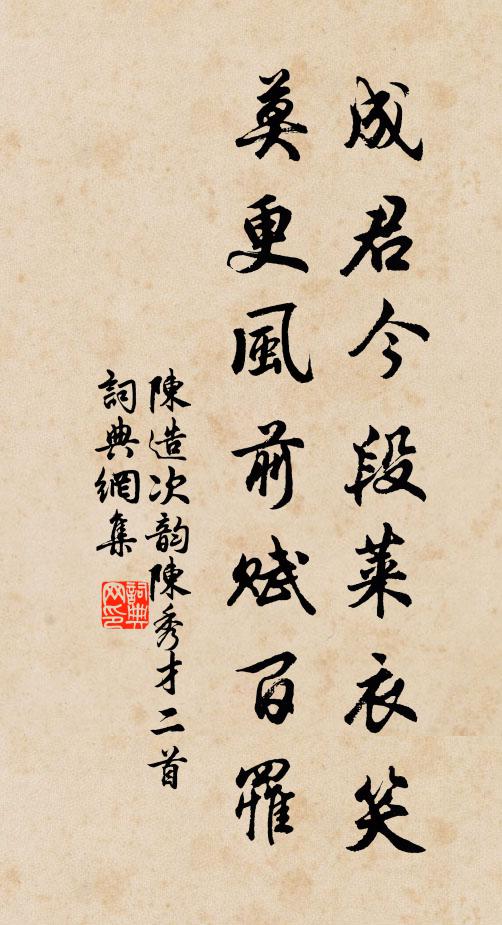 成君今段萊衣笑
莫更風前賦百罹
陳造次韵陳秀才二首
詞典網集
詞典网印